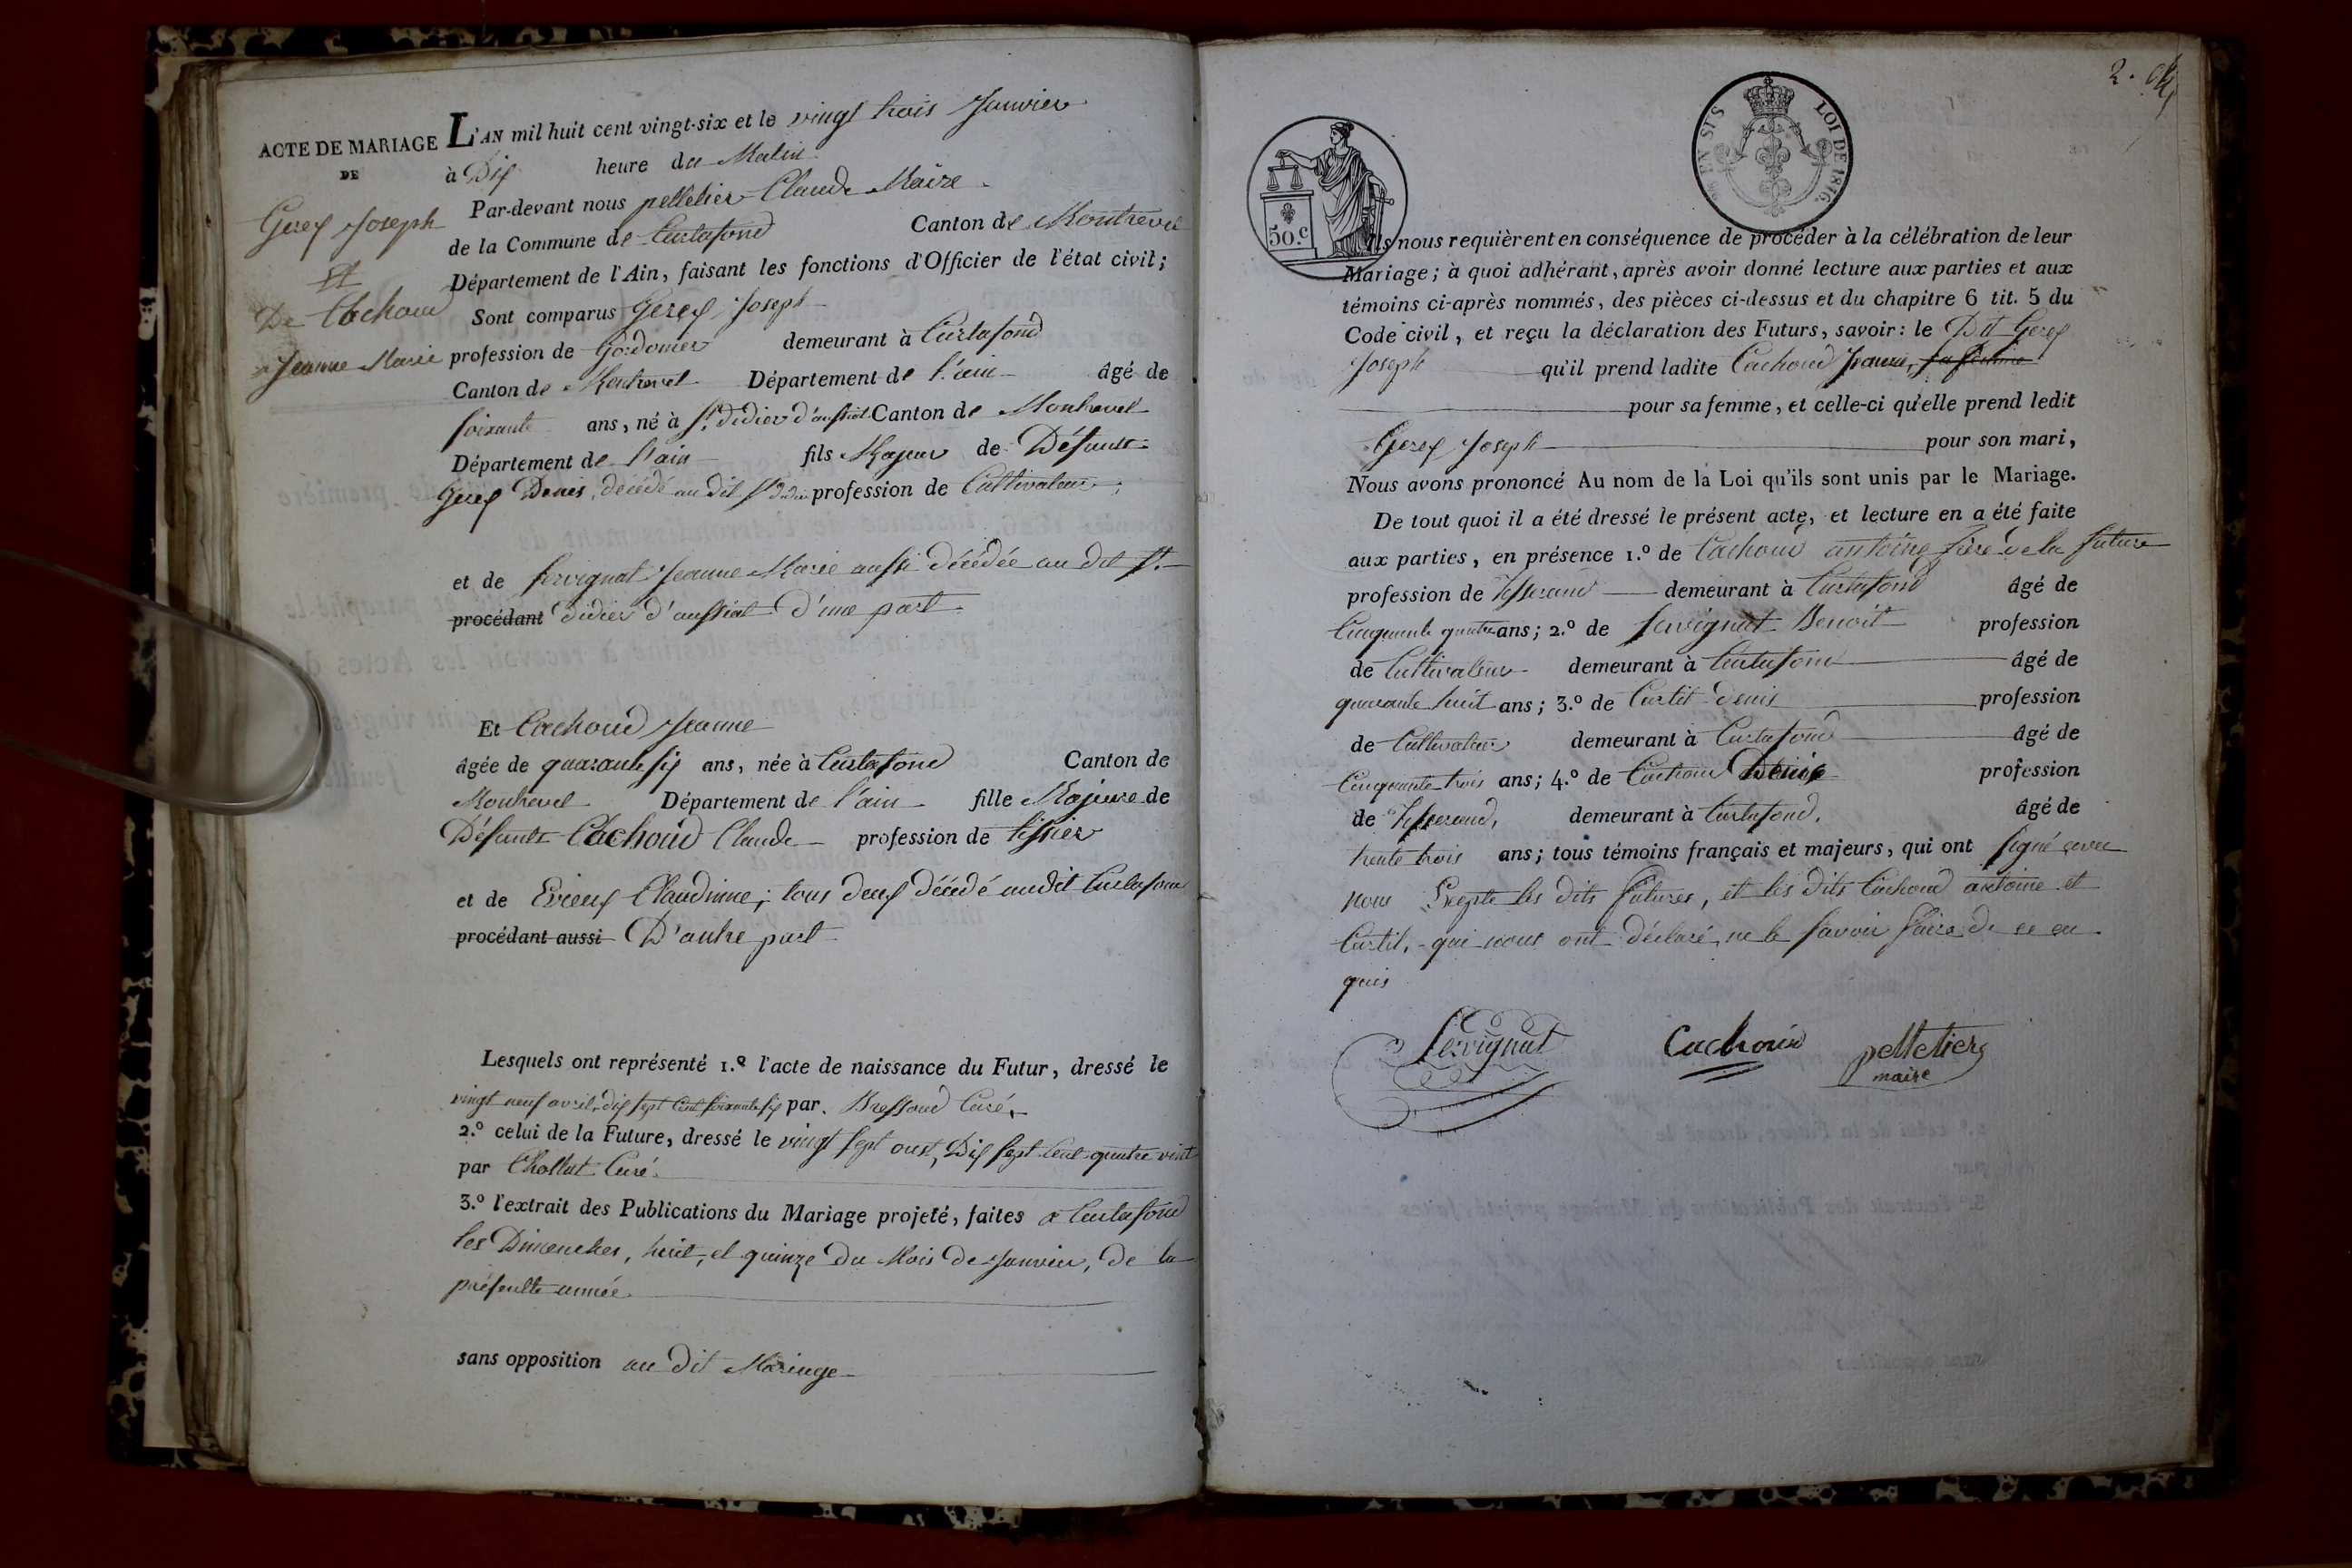 ACTE DE MARIAGE
DE
Gerex Joseph
et
De Cachoud
Jeanne Marie
L'AN mil huit cent vingt-six et le vingt trois Janvier
à Dix heure du Matin
Par-devant nous pelletier Claude Maire
de la Commune de Curtafond Canton de Montrevel
Département de l'Ain, faisant les fonctions d'Officier de l'état civil;
Sont comparus Gerex Joseph
profession de Cordonier demeurant à Curtafond
Canton de Montrevel Département de l'ain âgé de
soixante ans, né à St. didier d'aussiat Canton de Montrevel
Département de l'ain fils Majeur de Défunt
Gerex Denis, décédé au dit St didier profession de Cultivateur;
et de Servignat Jeanne Marie aussi décédée au dit St.
procédant didier d'aussiat D'une part
Et Cachoud Jeanne
âgée de quarante six ans, née à Curtafond Canton de
Montrevel Département de l'ain fille Majeure de
Défunts Cachoud Claude profession de tissier
et de Evieux Claudinne; tous deux décédé audit Curtafond
procédant aussi D'autre part
Lesquels ont représenté 1.º l'acte de naissance du Futur, dressé le
vingt neuf avril, dix sept Cent soixante six par. Bressoud Curé,
2.º celui de la Future, dressé le vingt sept oust, Dix sept Cent quatre vint
par Chollat Curé.
3.º l'extrait des Publications du Mariage projeté, faites a Curtafond
les Dimenches, huit, et quinze du Mois de Janvier, de la
présente année
sans opposition au dit Mariage
2.
50.c
EN SIS
LOI DE 1816.
Ils nous requièrent en conséquence de procéder à la célébration de leur
Mariage; à quoi adhérant, après avoir donné lecture aux parties et aux
témoins ci-après nommés, des pièces ci-dessus et du chapitre 6 tit. 5 du
Code civil, et reçu la déclaration des Futurs, savoir: le Dit Gerex
Joseph qu'il prend ladite Cachoud Jeanne, sa femme
pour sa femme, et celle-ci qu'elle prend ledit
Gerex Joseph pour son mari,
Nous avons prononcé Au nom de la Loi qu'ils sont unis par le Mariage.
De tout quoi il a été dressé le présent acte, et lecture en a été faite
aux parties, en présence 1.º de Cachoud antoine frère de la future
profession de tisserand demeurant à Curtafond âgé de
Cinquante quatre ans; 2.º de Servignat Benoît profession
de Cultivateur demeurant à Curtafond âgé de
quarante huit ans; 3.º de Curtil denis profession
de Cultivateur demeurant à Curtafond âgé de
Cinquante trois ans; 4.º de Cachoud Denis profession
de tisserand, demeurant à Curtafond, âgé de
trente trois ans; tous témoins français et majeurs, qui ont signé avec
nous Exepte les dits futures, et les dits Cachoud antoine et
Curtil, qui nous ont déclaré ne le savoir faire de ce en
quis
Servignat Cachoud pelletier
maire